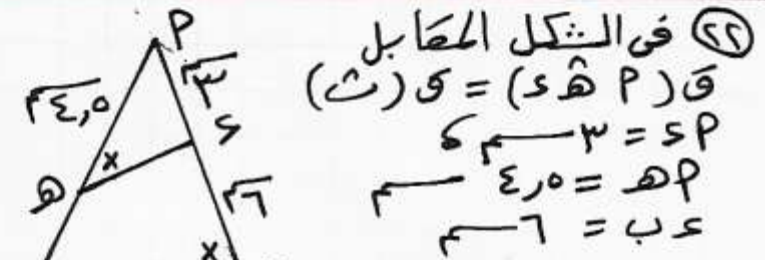 ٢٢ في الشكل المقابل
ق(P هـ̂ ء) = ق(ب̂)
P ء = ٣ سم ،
P هـ = ٤,٥ سم
ء ب = ٦ سم
P
٤,٥سم
٣سم
ء
x
هـ
٦سم
x